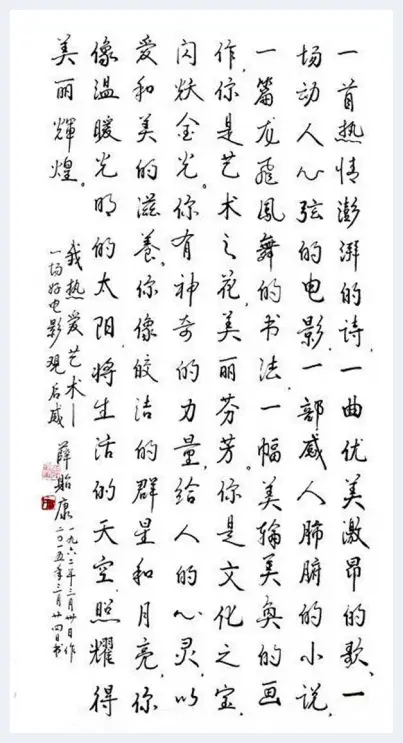 一首热情澎湃的诗,一曲优美激昂的歌,一
场动人心弦的电影,一部感人肺腑的小说,
一篇龙飛鳳舞的书法,一幅美輪美奂的画
作,你是艺术之花,美丽芬芳。你是文化之宝,
闪烁金光。你有神奇的力量,给人的心灵,以
爱和美的滋养,你像皎洁的群星和月亮,你
像温暖光明的太阳,将生活的天空,照耀得
美丽輝煌。
我热爱艺术—
一场好电影观后感
薛贻康
一九六二年三月卅日作
二〇一五年三月廿四日书